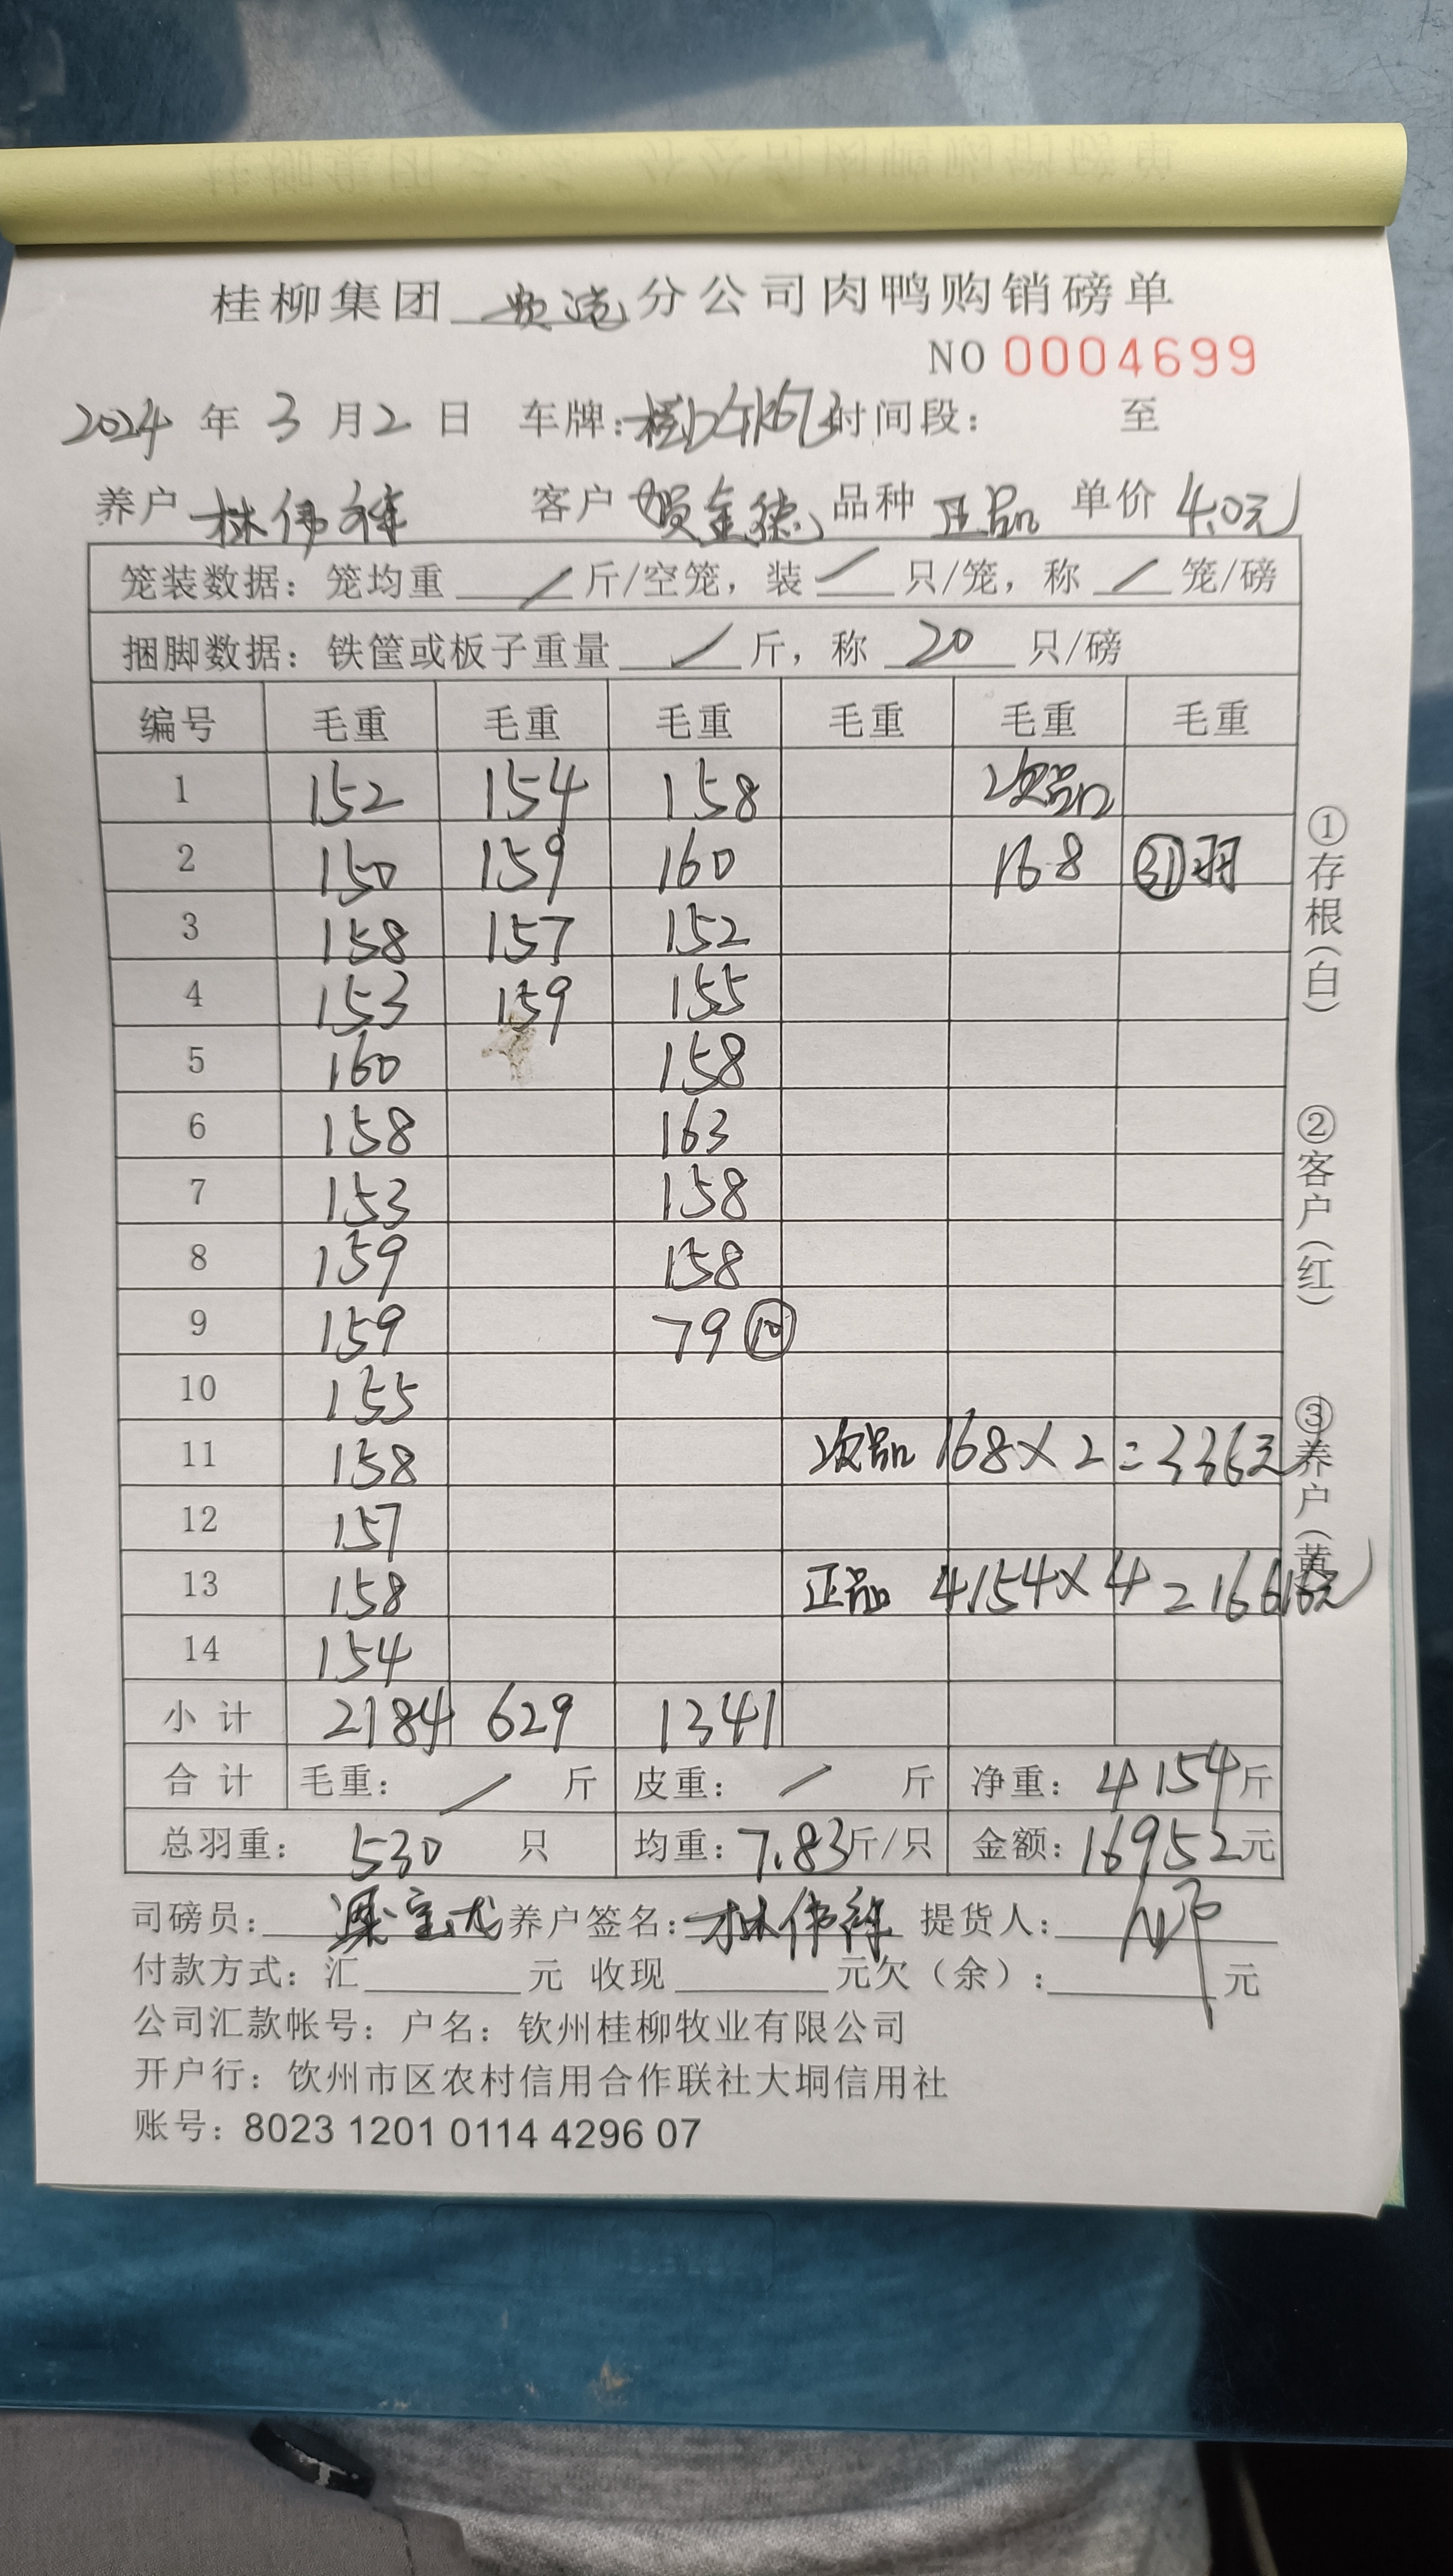 桂柳集团 钦港 分公司肉鸭购销磅单
NO 0004699
2024 年 3 月 2 日 车牌: 时间段: 至
养户 林伟锋 客户 贺金德 品种 正品 单价 4.0元
笼装数据: 笼均重 / 斤/空笼, 装 / 只/笼, 称 / 笼/磅
捆脚数据: 铁筐或板子重量 / 斤, 称 20 只/磅
编号 毛重 毛重 毛重 毛重 毛重 毛重
1 152 154 158 次品
2 150 159 160 168 ㉛羽
3 158 157 152
4 153 159 155
5 160 158
6 158 163
7 153 158
8 159 158
9 159 79 ⑩
10 155
11 158 次品 168×2=336元
12 157
13 158 正品 4154×4=16616元
14 154
小计 2184 629 1341
合计 毛重: / 斤 皮重: / 斤 净重: 4154斤
总羽重: 530 只 均重: 7.83斤/只 金额: 16952元
司磅员: 梁宝龙 养户签名: 林伟锋 提货人:
付款方式: 汇 元 收现 元欠(余): 元
公司汇款帐号: 户名: 钦州桂柳牧业有限公司
开户行: 饮州市区农村信用合作联社大垌信用社
账号: 8023 1201 0114 4296 07
①存根(白)
②客户(红)
③养户(黄)